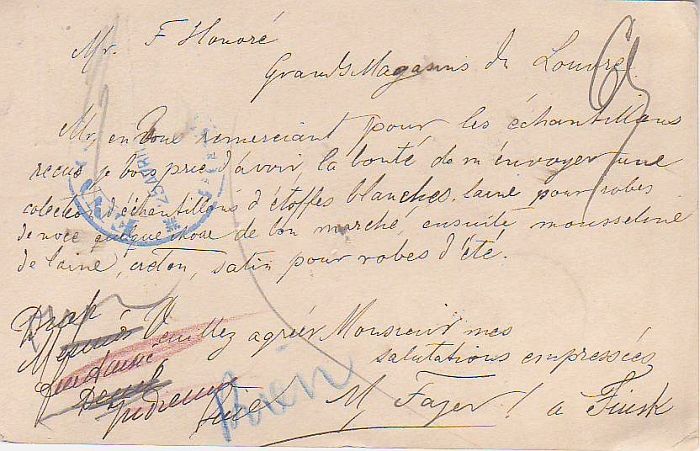 Mr. F Honoré
Grands Magasins du Louvre
Mr, en vous remerciant pour les échantillons
recus je vous prie d'avoir la bonté de m'envoyer une
colection d'échantillons d'étoffes blanches laine pour robes
de noce quelque chose de bon marché, ensuite mousseline
de laine, creton, satin pour robes d'été.
Veuillez agréer Monsieur mes
salutations empressées
M Fayer
a
25 AVRI